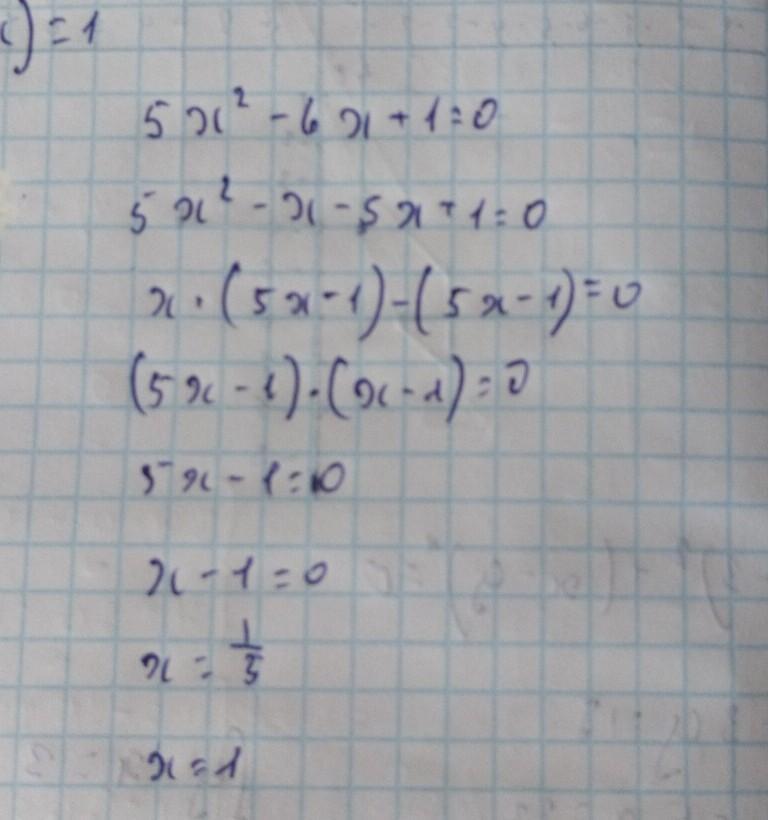 ) = 1
5x² - 6x + 1 = 0
5x² - x - 5x + 1 = 0
x · (5x - 1) - (5x - 1) = 0
(5x - 1) · (x - 1) = 0
5x - 1 = 0
x - 1 = 0
x = 1/5
x = 1